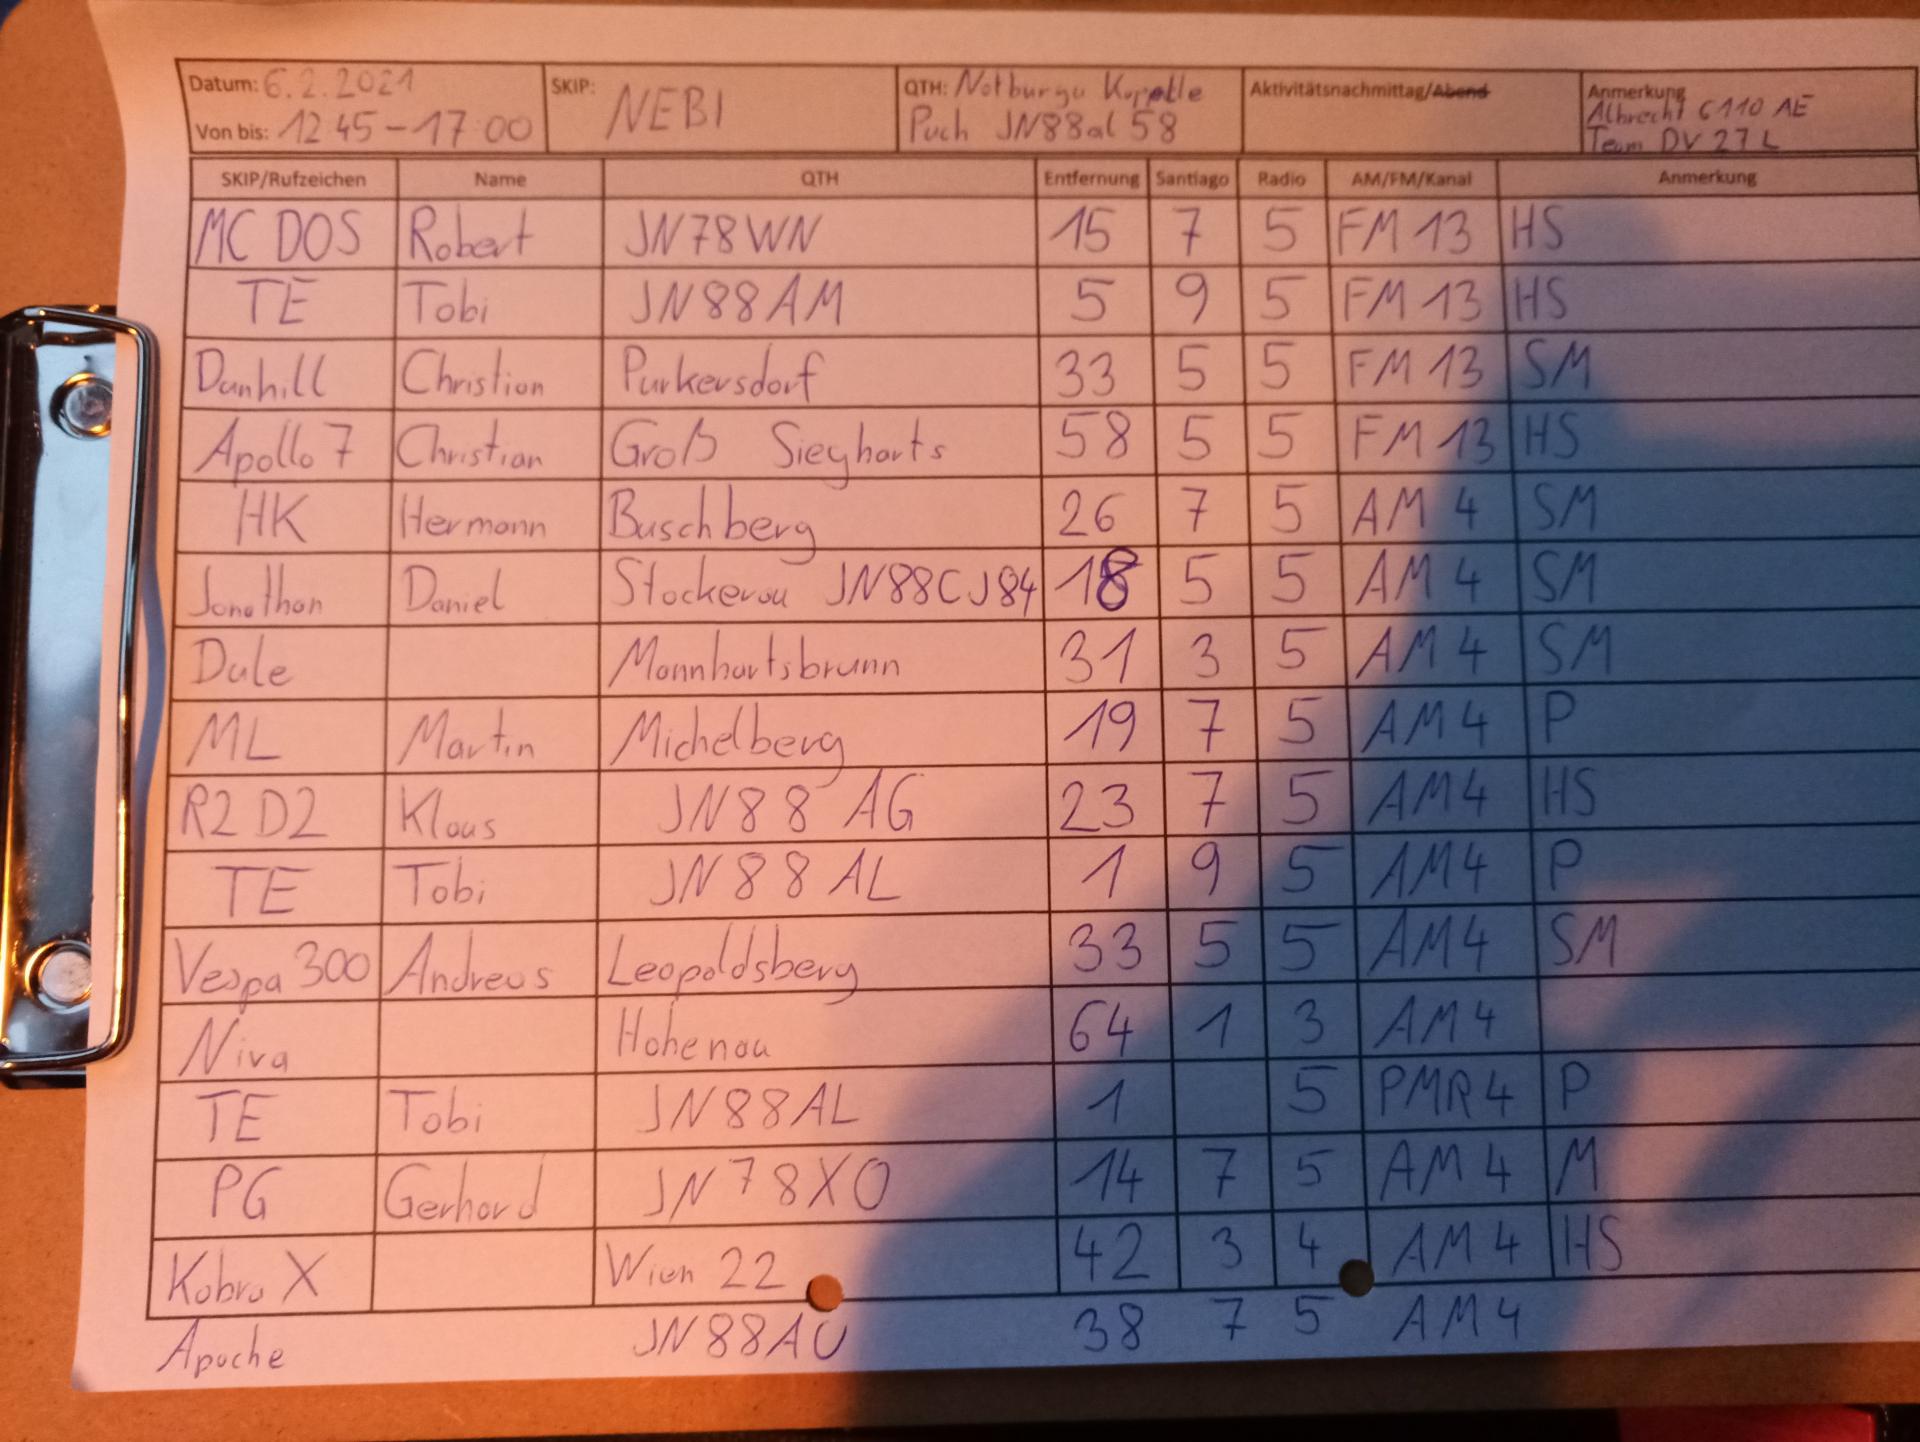 Datum: 6.2.2021 SKIP: NEBI QTH: Notburga Kapelle Aktivitätsnachmittag/Abend Anmerkung
Albrecht 6110 AE
Von bis: 12 45 - 17 00 Puch JN88al 58 Team DV 27 L
SKIP/Rufzeichen Name QTH Entfernung Santiago Radio AM/FM/Kanal Anmerkung
MC DOS Robert JN78WN 15 7 5 FM 13 HS
TE Tobi JN88AM 5 9 5 FM 13 HS
Dunhill Christian Purkersdorf 33 5 5 FM 13 SM
Apollo 7 Christian Groß Siegharts 58 5 5 FM 13 HS
HK Hermann Buschberg 26 7 5 AM 4 SM
Jonathan Daniel Stockerau JN88CJ84 18 5 5 AM 4 SM
Dale Mannhartsbrunn 31 3 5 AM 4 SM
ML Martin Michelberg 19 7 5 AM 4 P
R2 D2 Klaus JN88 AG 23 7 5 AM 4 HS
TE Tobi JN88 AL 1 9 5 AM 4 P
Vespa 300 Andreas Leopoldsberg 33 5 5 AM 4 SM
Niva Hohenau 64 1 3 AM 4
TE Tobi JN88AL 1 5 PMR 4 P
PG Gerhard JN78XO 14 7 5 AM 4 M
Kobra X Wien 22 42 3 4 AM 4 HS
Apache JN88AU 38 7 5 AM 4